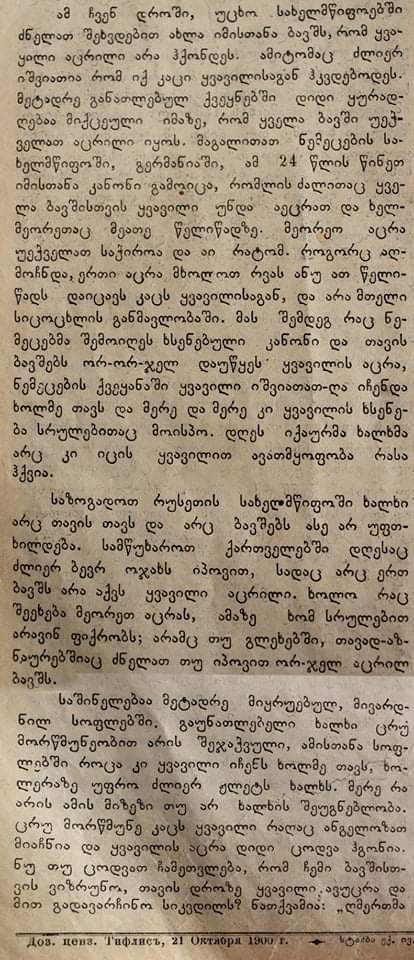 ამ ჩვენ დროში, უცხო სახელმწიფოებში
ძნელათ შეხვდებით ახლა იმისთანა ბავშს, რომ ყვა-
ყილი აცრილი არა ჰქონდეს. ამიტომაც ძლიერ
იშვიათია რომ იქ კაცი ყვავილისაგან ჰკვდებოდეს.
მეტადრე განათლებულ ქვეყნებში დიდი ყურად-
ღებაა მიქცეული იმაზე, რომ ყველა ბავში უექ-
ველათ აცრილი იყოს. მაგალითათ ნემეცების სა-
ხელმწიფოში, გერმანიაში, ამ 24 წლის წინეთ
იმისთანა კანონი გამოიცა, რომლის ძალითაც ყვე-
ლა ბავშისთვის ყვავილი უნდა აეცრათ და ხელ-
მეორეთაც მეათე წელიწადზე. მეორეთ აცრა
უექველათ საჭიროა და აი რატომ. როგორც აღ-
მოჩნდა, ერთი აცრა მხოლოთ რვას ანუ ათ წელი-
წადს დაიცავს კაცს ყვავილისაგან, და არა მთელი
სიცოცხლის განმავლობაში. მას შემდეგ რაც ნე-
მეცებმა შემოიღეს ხსენებული კანონი და თავის
ბავშებს ორ-ორ-ჯელ დაუწყეს ყვავილის აცრა,
ნემეცების ქვეყანაში ყვავილი იშვიათათ-ღა იჩენდა
ხოლმე თავს და მერე და მერე კი ყვავილის ხსენე-
ბა სრულებითაც მოისპო. დღეს იქაურმა ხალხმა
არც კი იცის ყვავილით ავათმყოფობა რასა
ჰქვია.
საზოგადოთ რუსეთის სახელმწიფოში ხალხი
არც თავის თავს და არც ბავშებს ასე არ უფთ-
ხილდება. სამწუხაროთ ქართველებში დღესაც
ძლიერ ბევრ ოჯახს იპოვით, სადაც არც ერთ
ბავშს არა აქვს ყვავილი აცრილი. ხოლო რაც
შეეხება მეორეთ აცრას, ამაზე ხომ სრულებით
არავინ ფიქრობს; არამც თუ გლეხებში, თავად-აზ-
ნაურებშიაც ძნელათ თუ იპოვით ორ-ჯელ აცრილ
ბავშს.
საშინელებაა მეტადრე მიყრუებულ, მივარდ-
ნილ სოფლებში. გაუნათლებელი ხალხი ცრუ
მორწმუნეობით არის შეჯაჭვული, ამისთანა სოფ-
ლებში როცა კი ყვავილი იჩენს ხოლმე თავს, ხო-
ლერაზე უფრო ძლიერ ჟლეტს ხალხს. მერე რა
არის ამის მიზეზი თუ არ ხალხის შეუგნებლობა.
ცრუ მორწმუნე კაცს ყვავილი რაღაც ანგელოზათ
მიაჩნია და ყვავილის აცრა დიდი ცოდვა ჰგონია.
ნუ თუ ცოდვათ ჩამეთვლება, რომ ჩემი ბავშისთ-
ვის ვიზრუნო, თავის დროზე ყვავილი ავუცრა და
მით გადავარჩინო სიკვდილს? ნათქვამია: „ღმერთმა
Доз. ценз. Тифлисъ, 21 Октября 1900 г. სტამბა ექ. ივ.